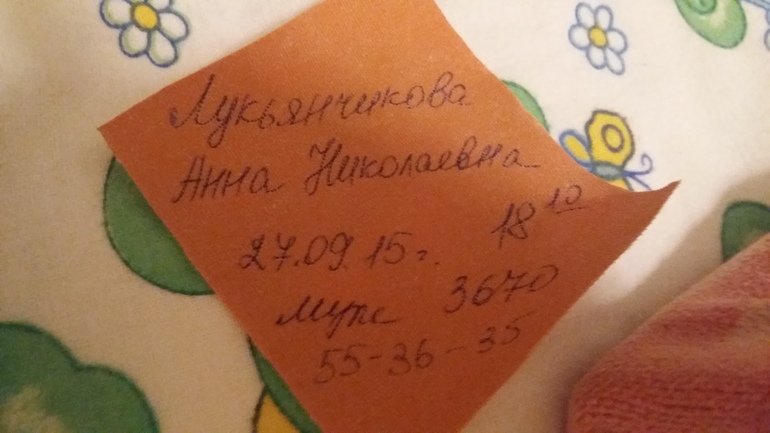 Лукьянчикова
Анна Николаевна
27.09.15г. 18 10
муж 3670
55-36-35